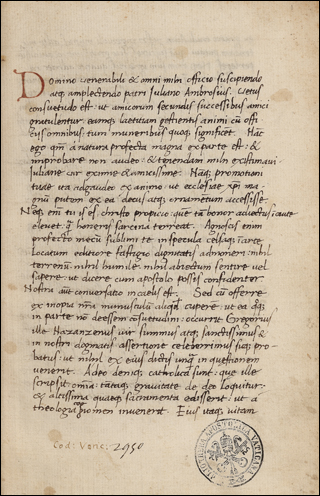 Domino venerabili & omni mihi officio suscipiendo
atq; amplectendo patri Iuliano Ambrosius. Vetus
consuetudo est: ut amicorum secundis successibus amici
gratulentur eamq; laetitiam gestientis animi cū offi
ciis omnibus tum muneribus quoq; significet. Hāc
ego qm̄ à natura profecta magna ex parte est: &
improbare non audeo: & tenendam mihi existimavi
Iuliane vir eximie & amicissime: Naq; promotioni
tuae ita adgaudeo ex animo: ut ecclesiae xp̄i ma-
gnū putem ex ea decus atq; ornamentum accessisse.
Neq; eni tu is es christo propicio: que tā bonor
elevet: q̄ honeris sarcina terreat. Agnoscis enim
profecto mecū sublimi te in specula
locatum editiore fastigio dignitatis admoneri: nihil
terrenū: nihil humile: nihil abiectum sentire vel
sapere: ut dicere cum apostolo possis confidenter:
Nostra aut̄ conversatio in caelis est. Sed cū offerre
ex inopia mea munusculi aliqd cupere: ut ea
in parte nō deessem cōsuetudini: occurrit Gregorius
ille Nazanzenus vir summus atq; sanctissimus &
in nostri dogmatis assertione celeberrimus sicq; pro-
batus: ut nihil ex eius dictis unq̄ in questionem
venerit. Adeo deniq; catholica sunt: que ille
scrapsit omia: tātaq; gravitate de deo loquitur:
& altissima quaeq; sacramenta edisserit: ut à
theologia nomen invenerit. Eius itaq; vitam
Cod: Vatic: 2950
BIBLIOTHECA APOSTOLICA VATICANA